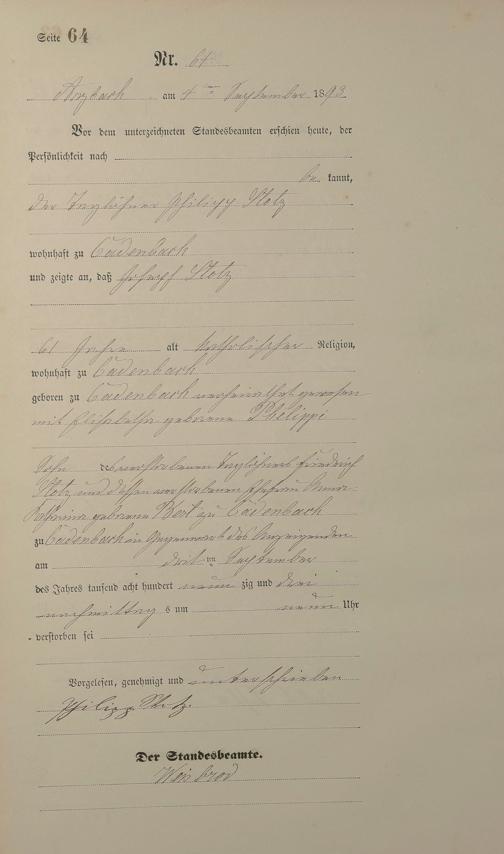 Seite 64
Nr. 64
Arzbach am 4ten September 1893
Vor dem unterzeichneten Standesbeamten erschien heute, der
Persönlichkeit nach
be kannt,
der Taglöhner Philipp Stotz
wohnhaft zu Cadenbach
und zeigte an, daß Joseph Stotz
61 Jahre alt katholischer Religion,
wohnhaft zu Cadenbach
geboren zu Cadenbach verheirathet gewesen
mit Elisabetha geborene Philippi
Sohn des verstorbenen Taglöhners Friedrich
Stotz und dessen verstorbenen Ehefrau Anna
Katharina geborene zu Cadenbach
zu Cadenbach in Gegenwart des Anzeigenden
am dritten September
des Jahres tausend acht hundert neun zig und drei
nachmittag s um neun Uhr
verstorben sei
Vorgelesen, genehmigt und unterschrieben
Philipp Stotz.
Der Standesbeamte.
Weisbrod